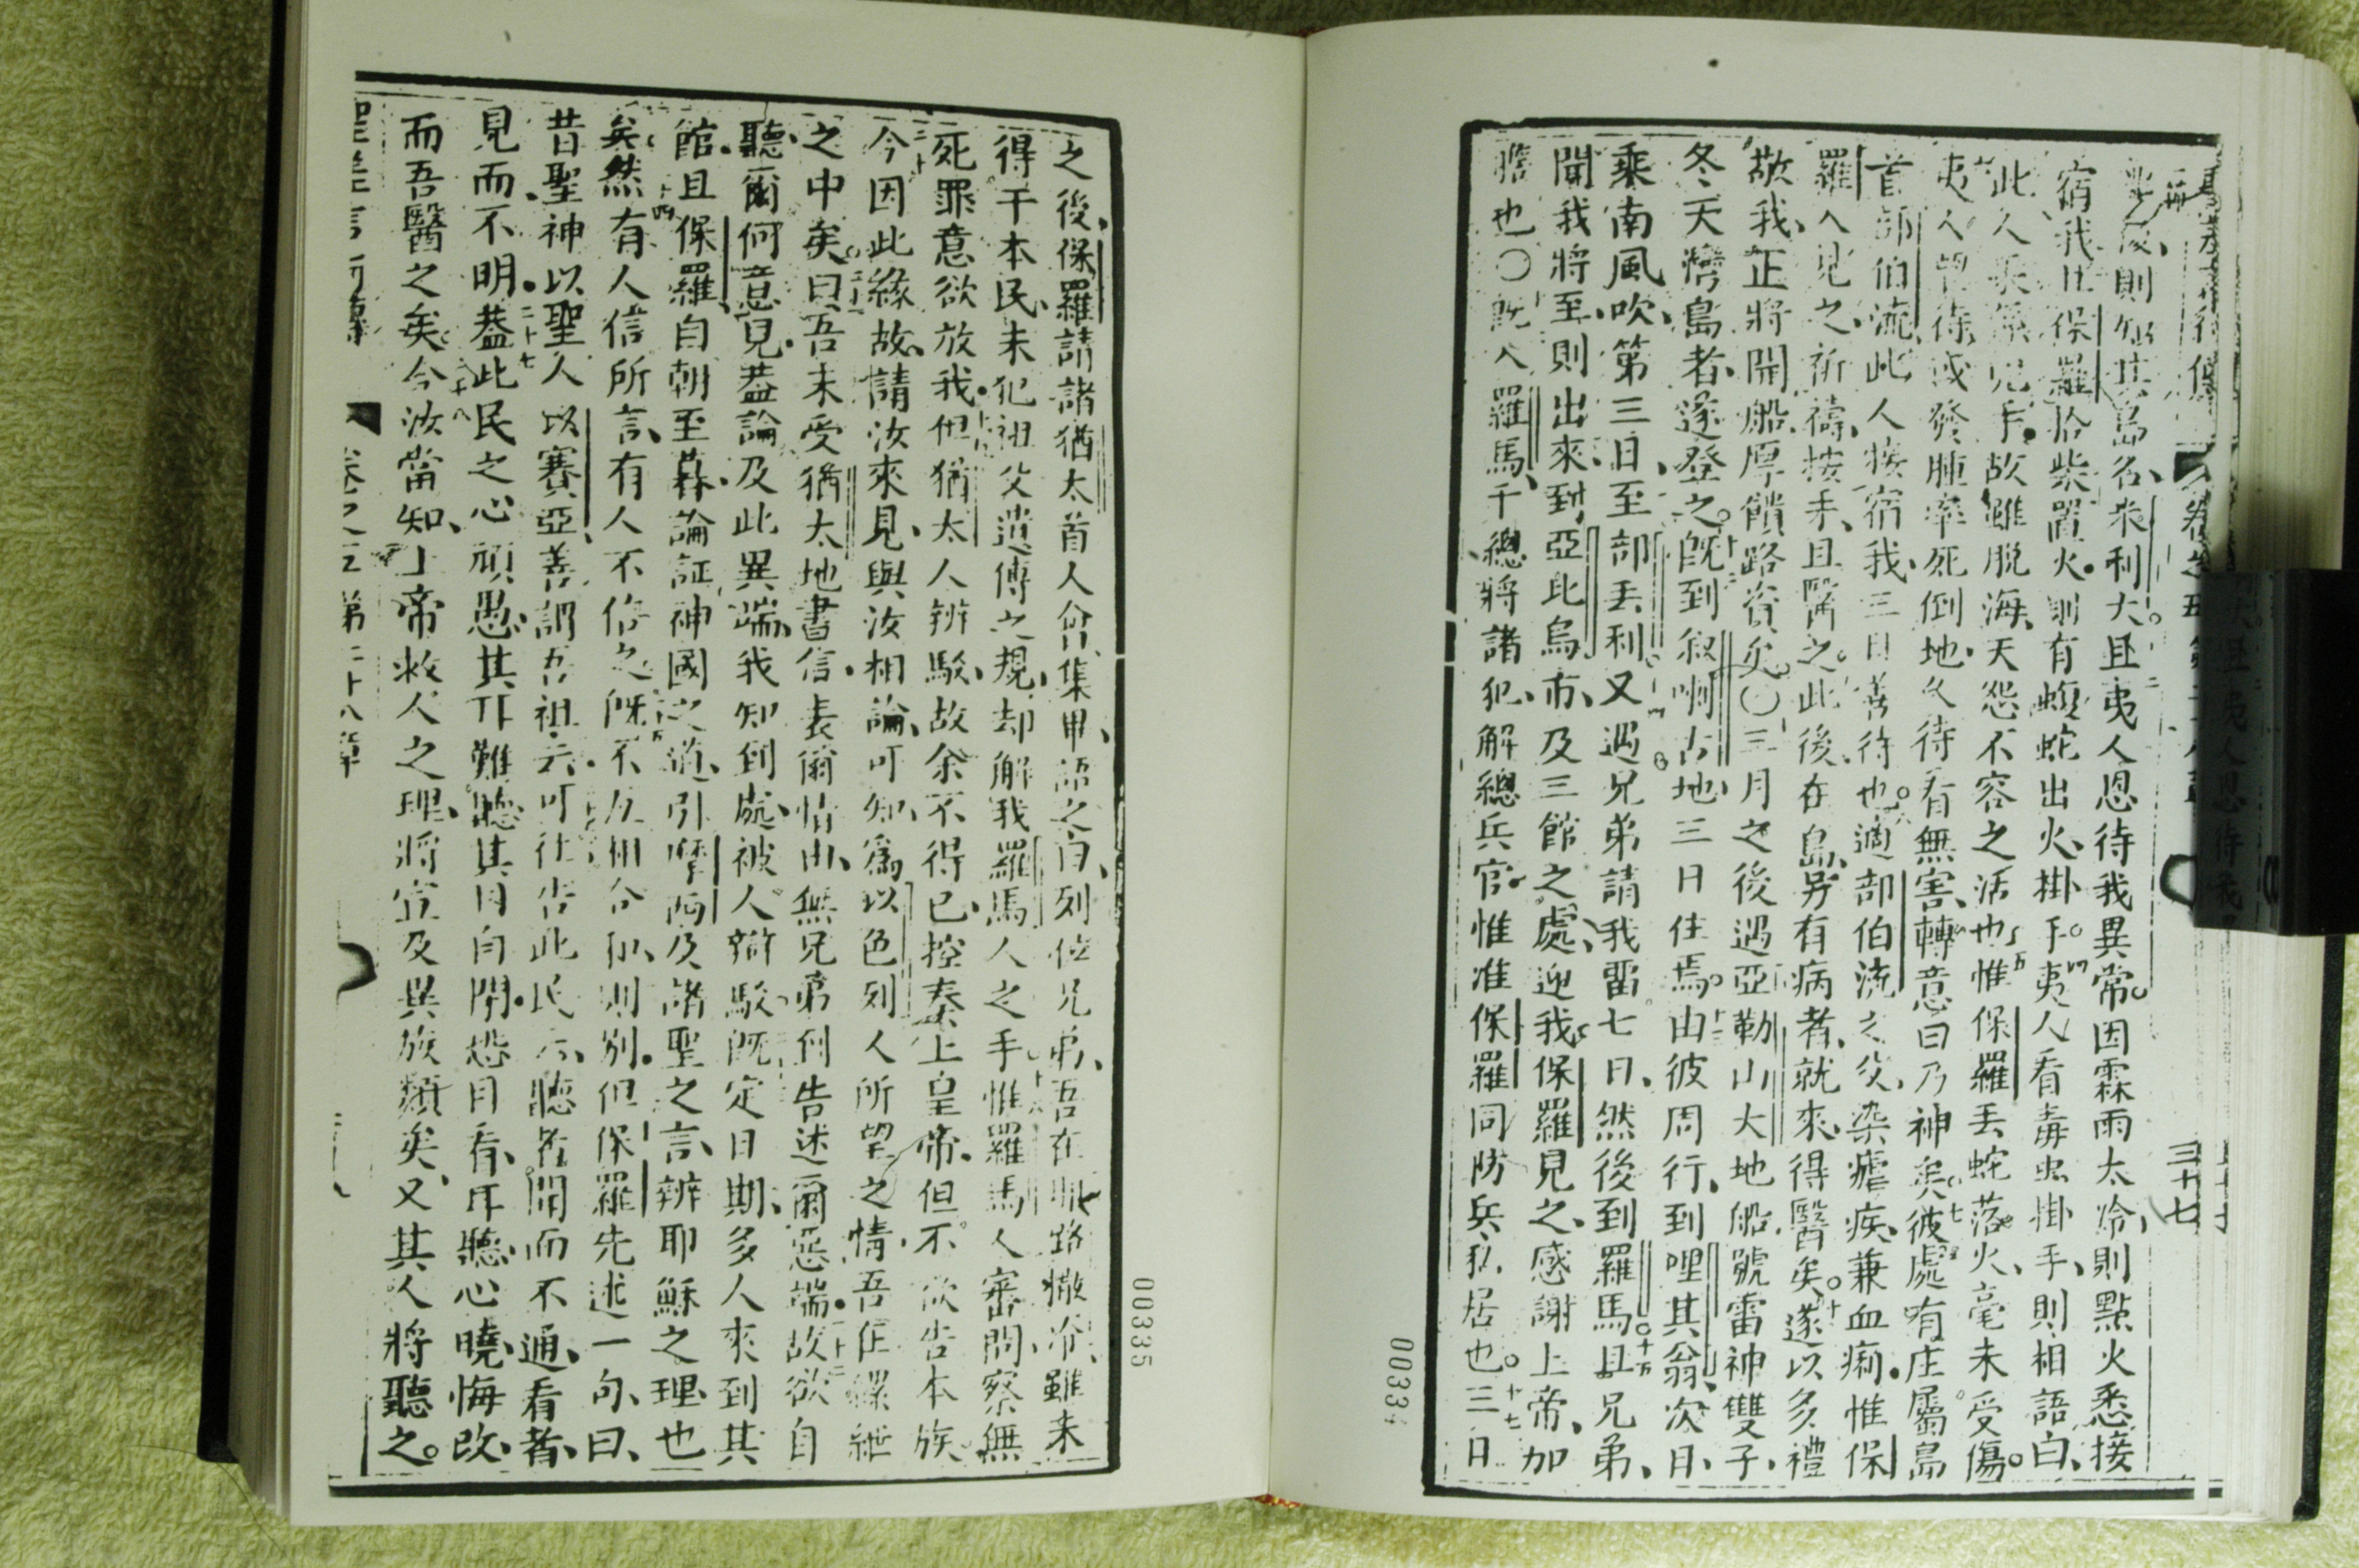 卷之五
三十七
則知其島名米利大且夷人恩待我異常因霖雨太冷則點火悉接
宿我 保羅拾柴置火則有蝮蛇出火掛手夷人看毒虫掛手則相語曰
此人 手故雖脫海天怨不容之活也惟保羅丟蛇落火毫未受傷
夷人 待或發腫率死倒地久待看無害轉意曰乃神矣彼處有庄屬島
首 部伯流此人接宿我三日善待也適部伯流之父染瘧疾兼血痢惟保
羅入見之祈禱按手且醫之此後在島另有病者就來得醫矣遂以多禮
敬我正將開船厚饋路資矣〇三月之後遇亞勒山大地船號雷神雙子
冬天灣島者遂登之既到叙 古地三日住焉由彼周行到哩其翁次日
乘南風吹第三日至部丟利又遇兄弟請我畱七日然後到羅馬且兄弟
聞我將至則出來到亞比烏市及三館之處迎我保羅見之感謝上帝加
膽也〇既入羅馬千總將諸犯解總兵官惟准保羅同防兵私居也三日
00334
之後保羅請諸猶太首人會集 語之曰列位兄弟吾在 路撒冷雖未
得干本民未犯祖父遺傳之規却解我羅馬人之手惟羅馬人審問察無
死罪意欲放我但猶太人辨駁故余不得已控奏上皇帝但不欲告本族
今因此緣故請汝來見與汝相論可知爲以色列人所望之情吾 縲絏
之中矣曰吾未受猶太地書信表爾情由無兄弟到告述爾惡端故欲自
聽爾何意見蓋論及此異端我知到處被人辯駁既定日期多人來到其
館且保羅自朝至暮論証神國之道引摩西及諸聖之言辨耶穌之理也
矣然有人信所言有人不信之既不 相合 則別但保羅先述一句曰
昔聖神以聖人以賽亞善謂吾祖云可往告此民 聽者聞而不通看者
見而不明蓋此民之心頑愚其耳難聽其目自閉恐目看耳聽心曉悔改
而吾醫之矣今汝當知上帝救人之理將宣及異族類矣又其人將聽之
第二十八章
00335